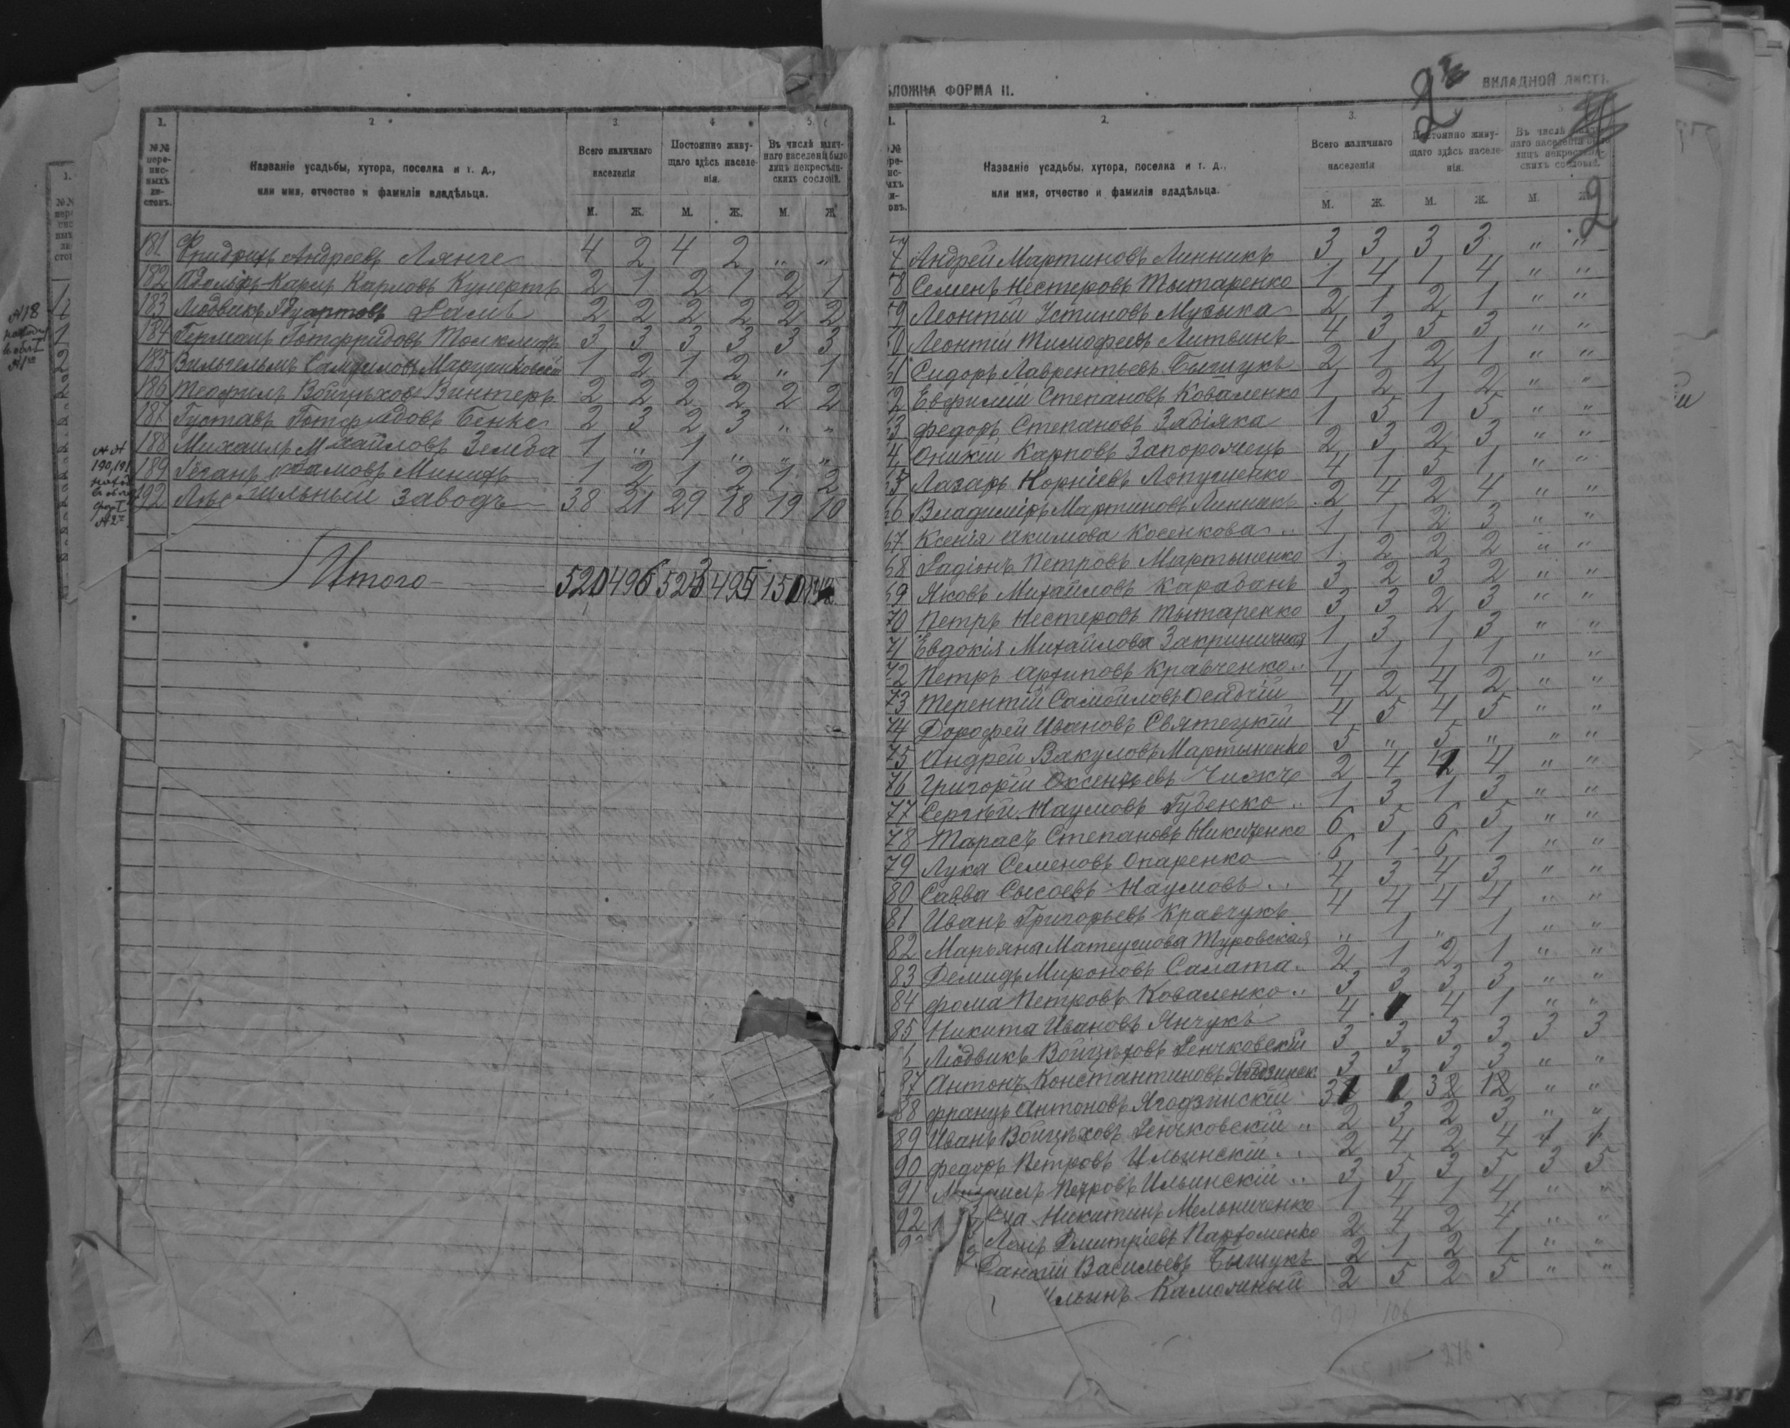 1. 2 3 4 5
№№ пере-пис-ныхъ ли-стовъ.
Названіе усадьбы, хутора, поселка и т. д.,
или имя, отчество и фамилія владѣльца.
Всего наличнаго населенія
Постоянно живу-щаго здѣсь населе-нія.
Въ числѣ налич-наго населенія было лицъ некрестьян-скихъ сословій.
М. Ж. М. Ж. М. Ж
181 Фридрихъ Андреевъ Лянге 4 2 4 2 „ „
182 Адольфъ Карлъ Карловъ Кунертъ 2 1 2 1 2 1
183 Людвикъ 2 2 2 2 2 2
184 Германъ Готфридовъ 3 3 3 3 3 3
185 Вильгельмъ Самуиловъ 1 2 1 2 „ 1
186 Теофилъ Войцѣховъ Винтеръ 2 2 2 2 2 2
187 Густавъ Бенке 2 3 2 3 „ „
188 Михаилъ Михайловъ Земба 1 „ 1 „ „ „
189 Адамовъ 1 2 1 2 1 2
192 Лѣсопильный заводъ 38 21 29 18 19 10
Итого 520 496 523 495 150
ФОРМА II.
ВКЛАДНОЙ ЛИСТЪ.
2
2. 3.
Названіе усадьбы, хутора, поселка и т. д.,
или имя, отчество и фамилія владѣльца.
Всего наличнаго населенія
Постоянно живу-щаго здѣсь населе-нія.
М. Ж. М. Ж. М. Ж.
Андрей Мартиновъ Линникъ 3 3 3 3 „ „
8 Семенъ Нестеровъ Тытаренко 1 4 1 4 „ „
9 Леонтій Устиновъ Музыка 2 1 2 1 „ „
Леонтій Тимофеевъ Литвинъ 4 3 5 3 „ „
Сидоръ Лаврентьевъ Бышукъ 2 1 2 1 „ „
2 Евфимій Степановъ Коваленко 1 2 1 2 „ „
3 Федоръ Степановъ Забіяка 1 5 1 5 „ „
4 Оникій Карповъ Запорожецъ 2 3 2 3 „ „
Лазарь Корніевъ Лопушенко 4 1 5 1 „ „
6 Владиміръ Мартиновъ Линникъ 2 4 2 4 „ „
67 Ксенія Акимова Косенкова 1 1 2 3 „ „
68 Радіонъ Петровъ Мартыненко 1 2 2 2 „ „
69 Яковъ Михайловъ Карабанъ 3 2 3 2 „ „
70 Петръ Нестеровъ Тытаренко 3 3 2 3 „ „
71 Евдокія Михайлова Закриничная 1 3 1 3 „ „
72 Петръ Архиповъ Кравченко 1 1 1 1 „ „
73 Терентій Самойловъ Осадчій 4 2 4 2 „ „
74 Дорофей Ивановъ Святецкій 4 5 4 5 „ „
75 Андрей Вакуловъ Мартыненко 5 „ 5 „ „ „
76 Григорій Оксентьевъ Чижъ 2 4 4 „ „
77 Сергѣй Наумовъ Губенко 1 3 1 3 „ „
78 Тарасъ Степановъ Никитенко 6 5 6 5 „ „
79 Лука Семеновъ Опаренко 6 1 6 1 „ „
80 Савва Сысоевъ Наумовъ 4 3 4 3 „ „
81 Иванъ Григорьевъ Кравчукъ 4 4 4 4 „ „
82 Марьяна Матеушова Туровская „ 1 „ 1 „ „
83 Демидъ Мироновъ Салата 2 1 2 1 „ „
84 Фома Петровъ Коваленко 3 3 3 3 „ „
85 Никита Ивановъ Янчукъ 4 1 4 1 „ „
Людвикъ Войцѣховъ Ренчковскій 3 3 3 3 3 3
87 Антонъ Константиновъ 3 3 3 3 „ „
88 Францъ Антоновъ Ягодзинскій „ „
89 Иванъ Войцѣховъ Ренчковскій 2 3 2 3 „ „
90 Федоръ Петровъ Ильинскій 2 4 2 4
91 Михаилъ Петровъ Ильинскій 3 5 3 5 3 5
92 Никитинъ Мельниченко 1 4 1 4 „ „
Дмитріевъ Пархоменко 2 4 2 4 „ „
Васильевъ Бышукъ 2 1 2 1 „ „
Ильинъ 2 5 2 5 „ „